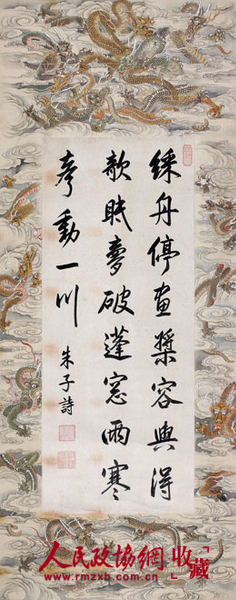 綵舟停畫槳容與得
欹眠夢破蓬窓雨寒
聲動一川
朱子詩
人民政協網「收藏」
www.rmzxb.com.cn